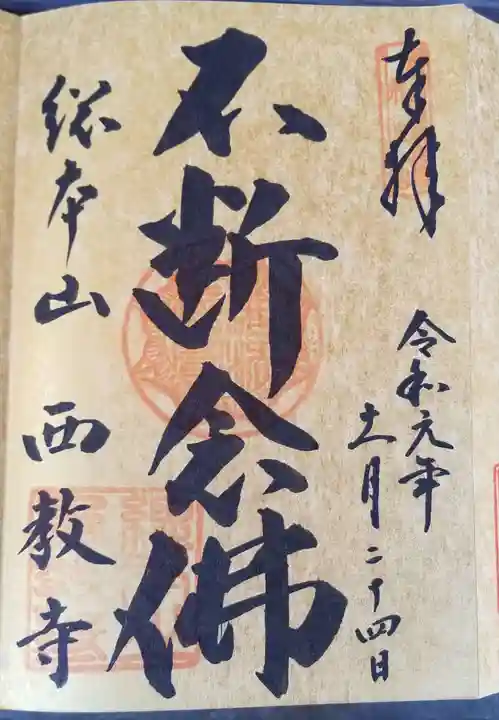 奉拝
令和元年
十一月二十四日
不断念佛
総本山 西教寺